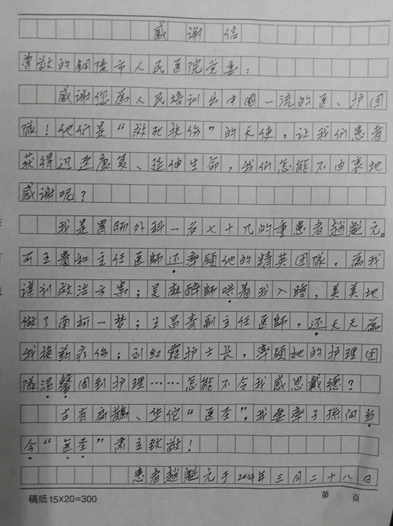 感谢信
尊敬的铜陵市人民医院党委：
感谢您为人民培训出中国一流的医、护团
队！他们是“救死扶伤”的天使，让我们患者
获得迅速康复、延伸生命，我们怎能不由衷地
感谢呢？
我是胃肠外科一名七十九的重患者越魁元。
可主任医师还率领他的精英团队，为我
谋划救治方案；吴麻醉师哄着我入睡，美美地
做了南柯一梦；王昌青副主任医师，还天天为
我换药疗伤；刘红霞护士长，率领她的护理团
队温馨周到护理……怎能不令我感恩戴德？
古有扁鹊、华佗“医圣”，我要率子孙向
今“医圣”肃立致敬！
患者越魁元于2014年三月二十八日
稿纸15×20=300
第 页